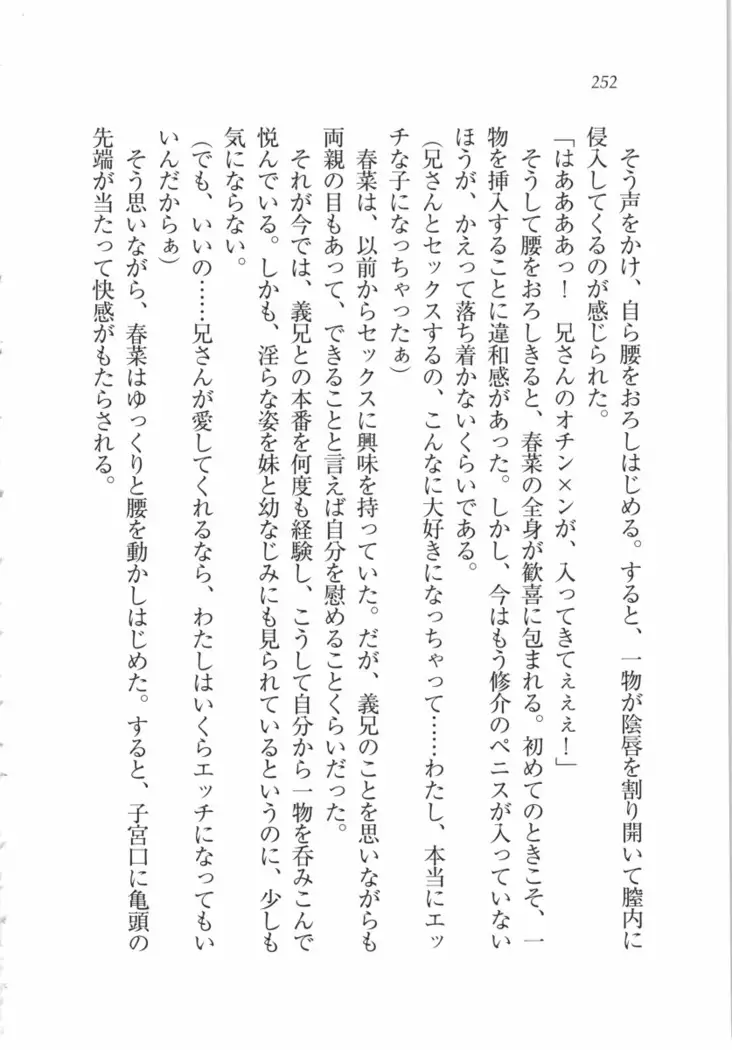 252
そう声をかけ、自ら腰をおろしはじめる。すると、一物が陰唇を割り開いて膣内に
侵入してくるのが感じられた。
「はああああっ！　兄さんのオチン×ンが、入ってきてぇぇぇ！」
そうして腰をおろしきると、春菜の全身が歓喜に包まれる。初めてのときこそ、一
物を挿入することに違和感があった。しかし、今はもう修介のペニスが入っていない
ほうが、かえって落ち着かないくらいである。
（兄さんとセックスするの、こんなに大好きになっちゃって……わたし、本当にエッ
チな子になっちゃったぁ）
春菜は、以前からセックスに興味を持っていた。だが、義兄のことを思いながらも
両親の目もあって、できることと言えば自分を慰めることくらいだった。
それが今では、義兄との本番を何度も経験し、こうして自分から一物を呑みこんで
悦んでいる。しかも、淫らな姿を妹と幼なじみにも見られているというのに、少しも
気にならない。
（でも、いいの……兄さんが愛してくれるなら、わたしはいくらエッチになってもい
いんだからぁ）
そう思いながら、春菜はゆっくりと腰を動かしはじめた。すると、子宮口に亀頭の
先端が当たって快感がもたらされる。